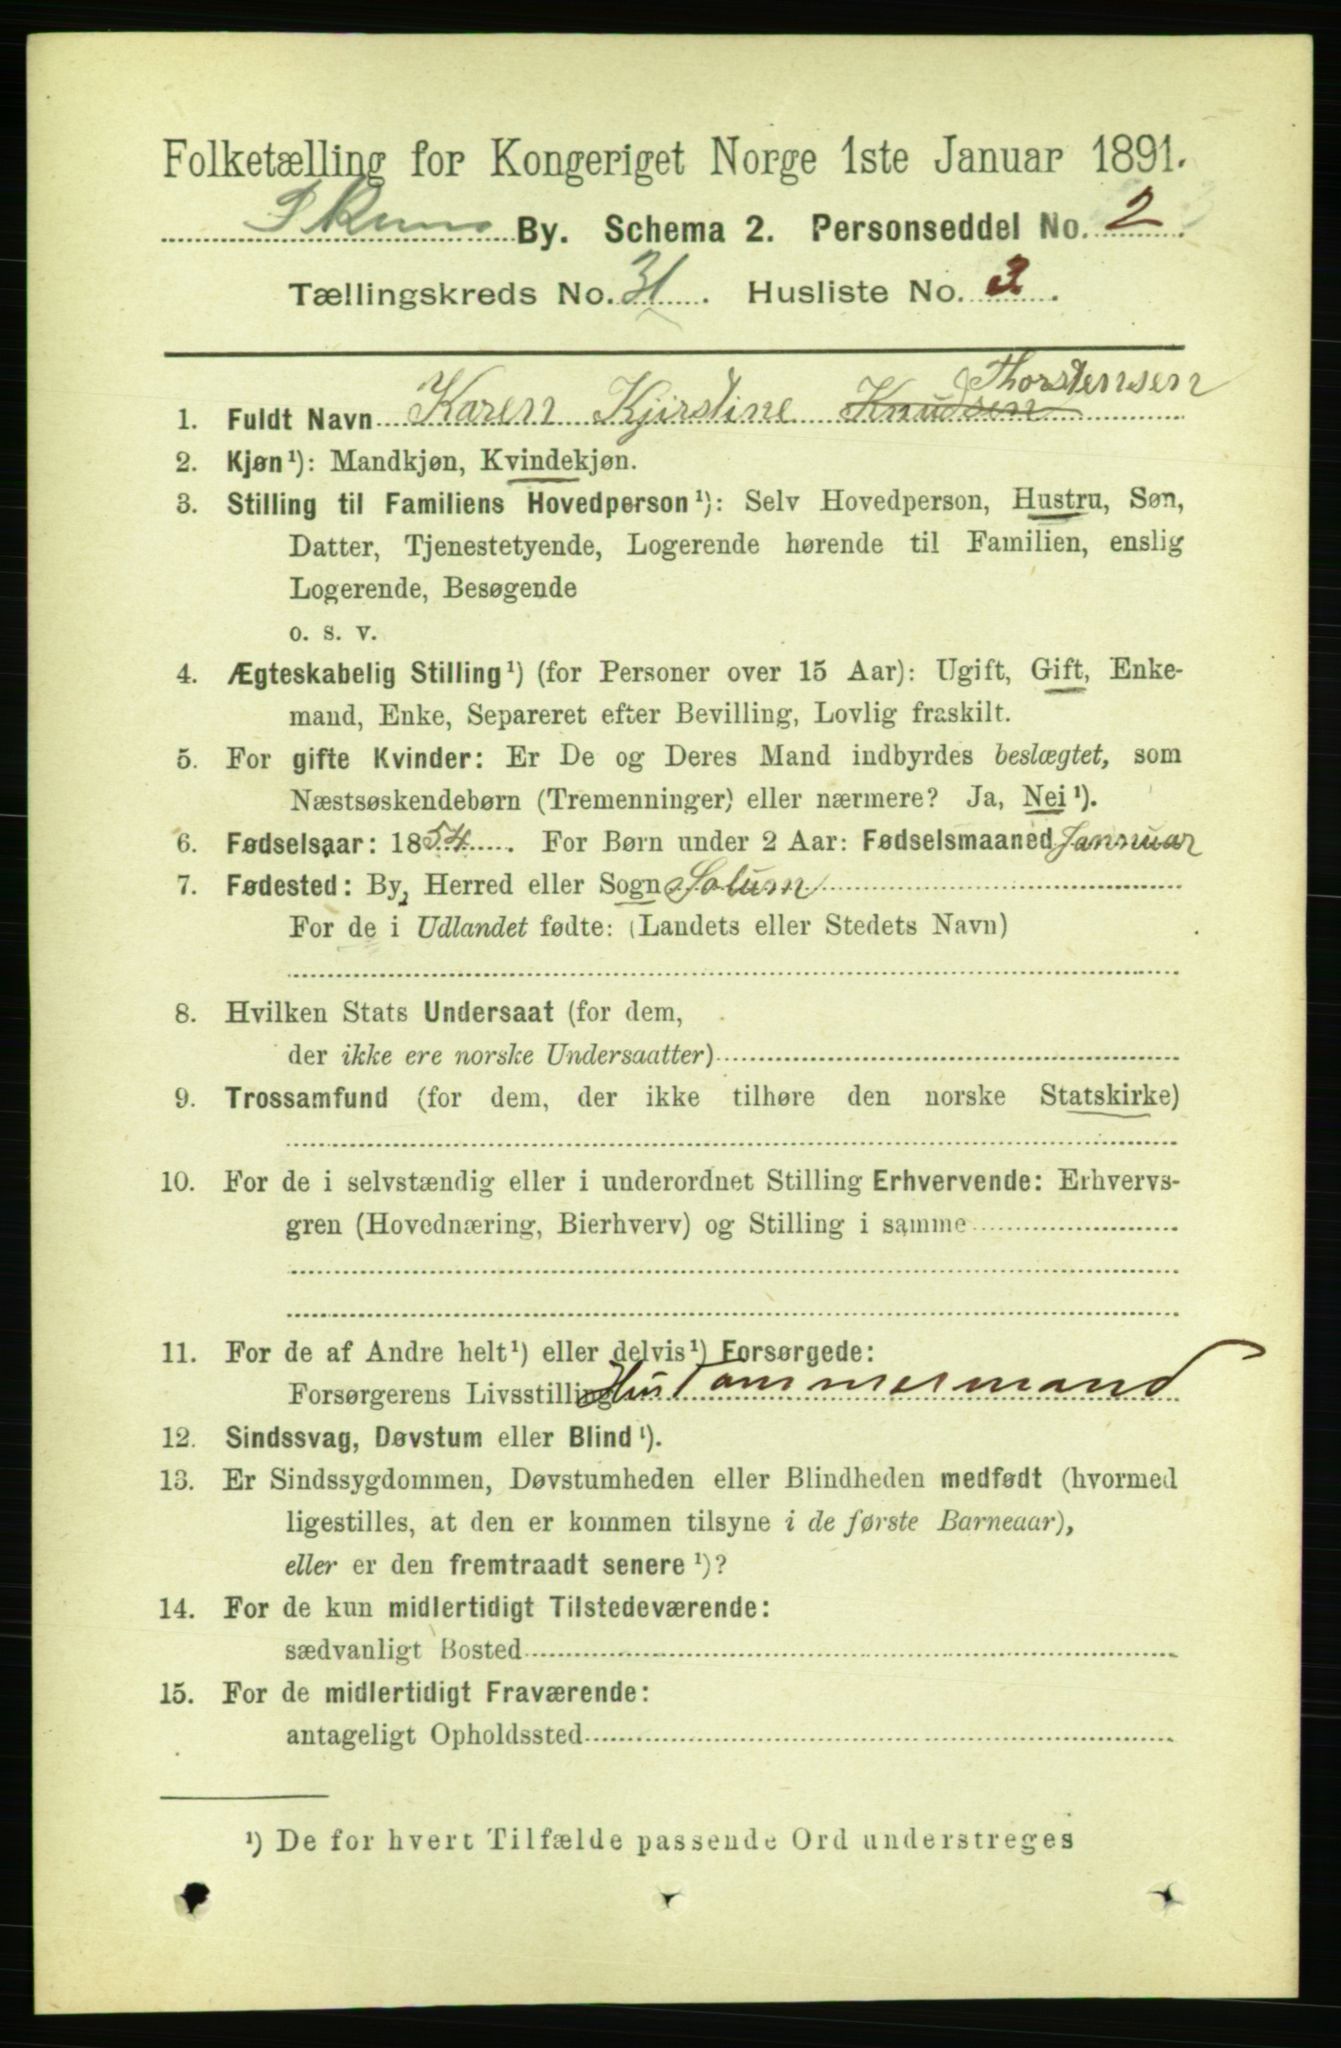 Folketælling for Kongeriget Norge 1ste Januar 1891.
Skien By. Schema 2. Personseddel No. 2
Tællingskreds No. 31. Husliste No. 3.
Thorstensen
1. Fuldt Navn Karen Kjirstine Knudsen
2. Kjøn¹): Mandkjøn, Kvindekjøn.
3. Stilling til Familiens Hovedperson¹): Selv Hovedperson, Hustru, Søn,
Datter, Tjenestetyende, Logerende hørende til Familien, enslig
Logerende, Besøgende
o. s. v.
4. Ægteskabelig Stilling¹) (for Personer over 15 Aar): Ugift, Gift, Enke-
mand, Enke, Separeret efter Bevilling, Lovlig fraskilt.
5. For gifte Kvinder: Er De og Deres Mand indbyrdes beslægtet, som
Næstsøskendebørn (Tremenninger) eller nærmere? Ja, Nei¹).
6. Fødselsaar: 1854. For Børn under 2 Aar: Fødselsmaaned Januar
7. Fødested: By, Herred eller Sogn Solum
For de i Udlandet fødte: (Landets eller Stedets Navn)
8. Hvilken Stats Undersaat (for dem,
der ikke ere norske Undersaatter)
9. Trossamfund (for dem, der ikke tilhøre den norske Statskirke)
10. For de i selvstændig eller i underordnet Stilling Erhvervende: Erhvervs-
gren (Hovednæring, Bierhverv) og Stilling i samme
11. For de af Andre helt¹) eller delvis¹) Forsørgede:
Forsørgerens Livsstilling Hustømmermand
12. Sindssvag, Døvstum eller Blind¹).
13. Er Sindssygdommen, Døvstumheden eller Blindheden medfødt (hvormed
ligestilles, at den er kommen tilsyne i de første Barneaar),
eller er den fremtraadt senere¹)?
14. For de kun midlertidigt Tilstedeværende:
sædvanligt Bosted
15. For de midlertidigt Fraværende:
antageligt Opholdssted
¹) De for hvert Tilfælde passende Ord understreges